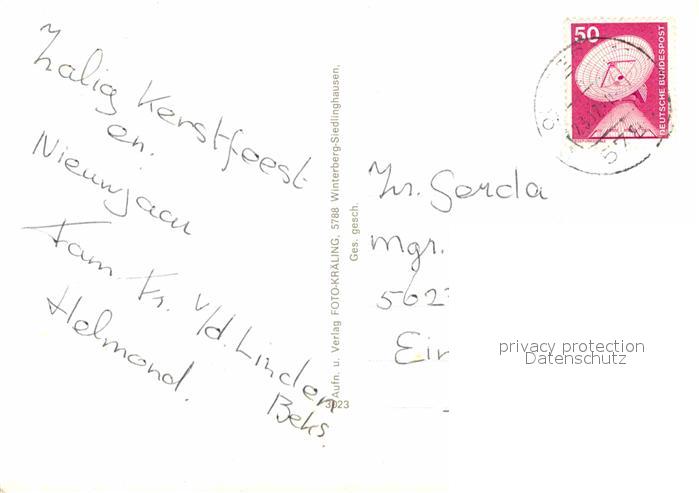 Zalig Kerstfeest
en.
Nieuwjaar
Fam. Fr. v/d. Linden
Beks.
Helmond.
Aufn. u. Verlag FOTO-KRÄLING, 5788 Winterberg-Siedlinghausen,
Ges. gesch.
3023
50
DEUTSCHE BUNDESPOST
Zr. Gerda
mgr.
562
Ein
privacy protection
Datenschutz